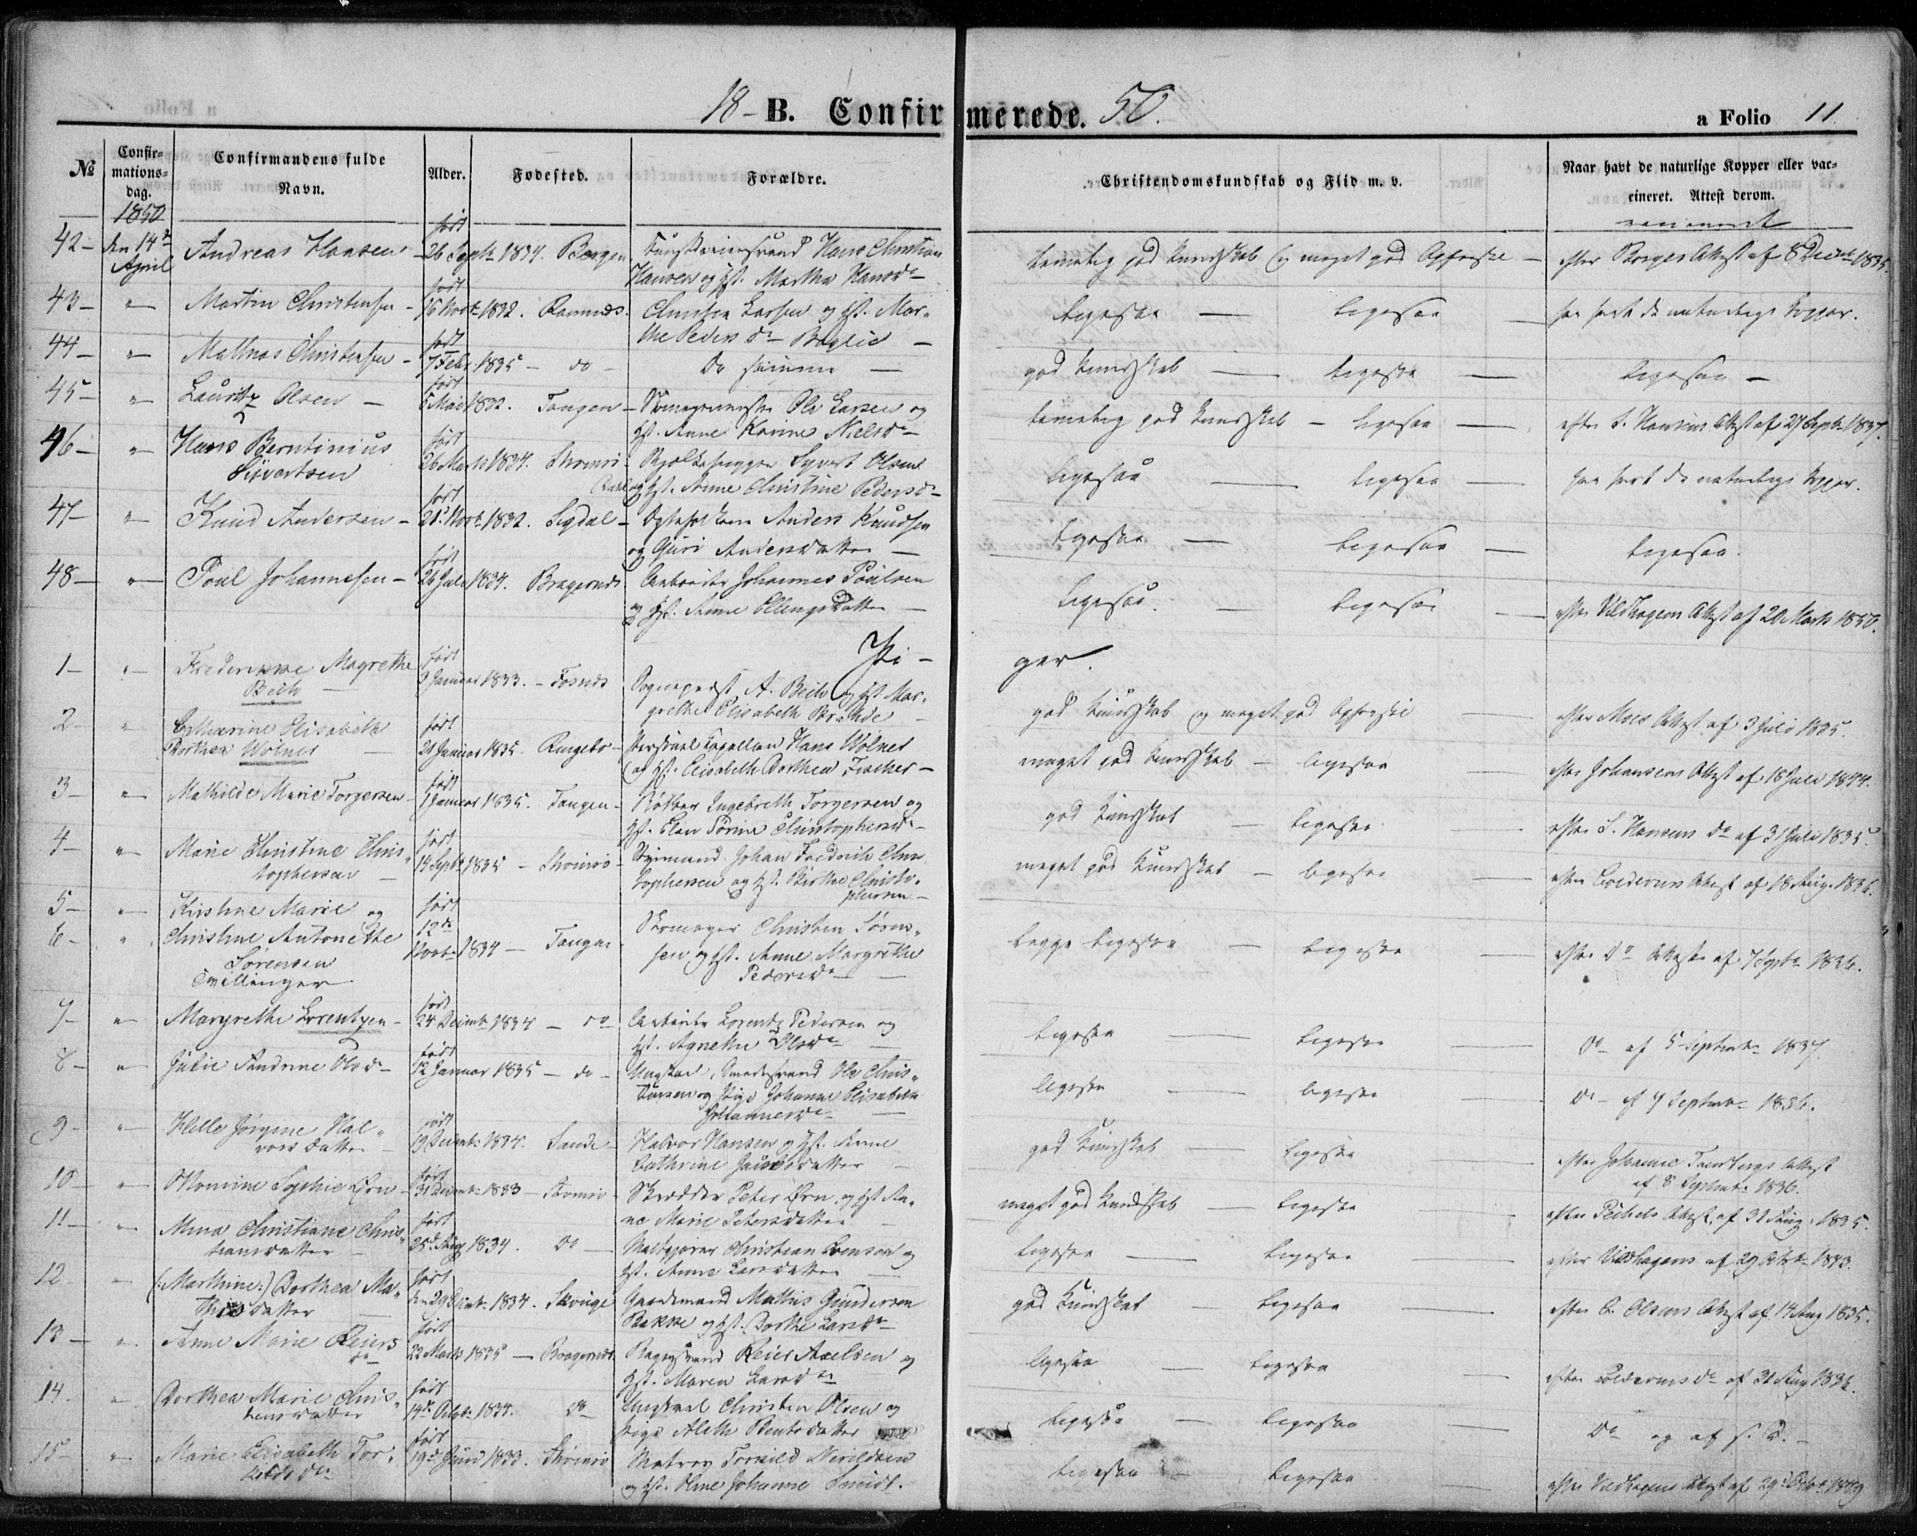 18- B. Confirmerede. 50.
a Folio 11
№
Confirmationsdag.
Confirmandens fulde Navn.
Alder.
Fødested.
Forældre.
Christendomskundskab og Fliid m. v.
Naar havt de naturlige Kopper eller vaccineret. Attest derom.
1850
vaccineret
42- den 14de April Andreas Hansen født 26 Septbr 1834. Bergen Hans Christian
Hansen og Hst. Marthe Hansdr
temelig god Kundskab og meget god Opførsel - efter Attest af 8 1835.
43- " Martin Christensen - født 16 Novbr 1832. Ramnes. Larsen og Hst. Mar-
the Pedersdr -
ligesaa - ligesaa - har havt de naturlige Kopper.
44- " Mathias Christensen - født 7 Febr 1835 - do - De samme -
god Kundskab - ligesaa - ligesaa -
45- " Lauritz Olsen - født 5 Mai 1832. Tangen - Skomagermester Ole Larsen og
Hst. Anne Karine Nielsdr
temelig god Kundskab - ligesaa - efter S. Hansens Attest af 27 Septbr 1837.
46- " Hans Berntinius
Sivertsen
født 26 Marts 1834. Strømsø - Syvert Olsen
og Hst. Anne Christine Pedersdr
ligesaa - ligesaa - har havt de naturlige Kopper.
47- " Knud Andersen - født 21de Novbr 1832. Sigdal - Anders Knudsen
og Guri Andersdatter -
ligesaa - ligesaa - ligesaa.
48- " Poul Johannesen - født 26 Juli 1834. Bragernæs Arbeider Johannes Poulsen
og Hst. Anne Ellingsdatter -
ligesaa. - ligesaa - efter Vildhagens Attest af 20 Marts 1850.
Pi- ger.
1- " Frederikke Magrethe
Bech
født 3 Januar 1833. - Fosnæs Sogneprest A. Bech og Hst Mar-
grethe Elisabeth Brande -
god Kundskab og meget god Opførsel - efter Moes Attest af 3 Juli 1835.
2- " Catharine Elisabeth
Dorthea Wølner
født 28 Januar 1835. Ringebo - Personel Capellan Hans Wølner
og Hst. Elisabeth Dorthea Fischer -
meget god Kundskab - ligesaa - efter Johansens Attest af 18 Juli 1844.
3- " Mathilde Marie Torgersen - født 1 Januar 1835. Tangen - Ingebreth Torgersen og
Hst. Elen Torine Christophersdr -
god Kundskab - ligesaa - efter S. Hansens do af 31 Juli 1835.
4- " Marie Christine Chris-
tophersen -
født 14 Septbr 1835 - Strømsø - Styrmand Johan Frederik Chri-
stophersen og Hst. Birthe Christo-
phersen -
meget god Kundskab - ligesaa - efter Attest af 18 Aug. 1836.
5- " Kirstine Marie og
6- " Christine Antonette
Sørensen
Tvillinger
født 12te Novbr 1834 - Tangen Skomager Christen Søren-
sen og Hst. Anne Margrethe
Pedersdr -
begge ligesaa - ligesaa - efter do Attester af 7 Septbr 1836.
7- " Margrethe Lorentzen - født 24 Decembr 1834 - do Arbeider Lorentz Pedersen og
Hst. Agnethe Olsdr -
ligesaa - ligesaa - do af 5 Septembr 1837.
8- " Julie Andrine Olsdr - født 12 Januar 1835 - do - Ungkarl, Ole Chris-
tensen og Pige Johanne Elisabeth
Johannesdr -
ligesaa - ligesaa - do - af 7 Septembr 1836.
9- " Helle Jørgine Hal-
vorsdatter -
født 19 Decembr 1834. Sande - Halvor Hansen og Hst. Anne
Cathrine datter -
god Kundskab - ligesaa - efter Johanne Attest
af 8 Septembr 1836.
10- " Sophie Ørn - født 31 Decembr 1833 - Strømsø - Skrædder Peter Ørn, og Hst An-
ne Marie Petersdatter -
meget god Kundskab - ligesaa - efter Attest, af 31 Aug. 1835.
11- " Anna Christiane Chris-
tiansdatter -
født 25de Aug 1834. do - Christian Evensen og
Hst. Anne Larsdatter -
ligesaa - ligesaa - efter Vildhagens af 29 Octbr 1843.
12 " (Marthine) Dorthea Ma-
thisdatter -
født den 29 Decbr. 1834. Skouge Gaardmand Mathis Gundersen
Bakke og Hst. Dorthe Larsdr
god Kundskab - ligesaa - efter C. Olsens Attest af 14 Aug 1835.
13- " Anne Marie Reiers
dr
født 22 Marts 1835 - Bragernæs Reier Axelsen og
Hst. Maren Larsdr
ligesaa - ligesaa - efter do af 31 Aug 1836.
14- " Dorthea Marie Chris-
tensdatter
født 14de Octbr 1834. do Ungkarl Christen Olsen og
Pige Aleth Berntsdatter
ligesaa - ligesaa - do og af s. D. -
15- " Marie Elisabeth Tor-
kildsdr
født 19de Juni 1833. Strømsø Matros Torkild Nerildsen
og Hst. Oline Johanne Smidt.
ligesaa - ligesaa - efter Vildhagens Attest af 29de Octbr 1849